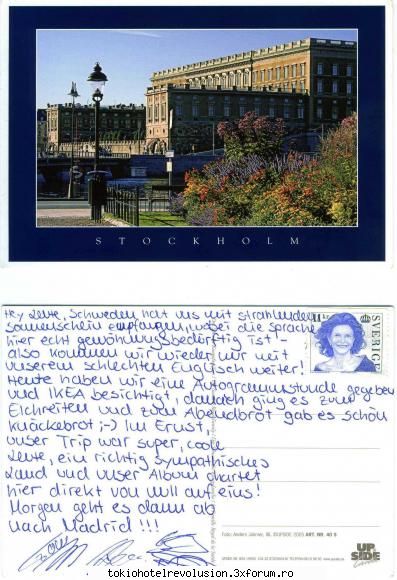 STOCKHOLM
Hey Leute, Schweden hat uns mit strahlendem
Sonnenschein empfangen, wobei die Sprache
hier echt gewöhnungsbedürftig ist! -
also kommen wir wieder nur mit
unserem schlechten Englisch weiter!
Heute haben wir eine Autogrammstunde gegeben
und IKEA besichtigt, danach ging es zum
Elchreiten und zum Abendbrot gab es schön
Knäckebrot ;-) Im Ernst,
unser Trip war super, coole
Leute, ein richtig sympathisches
Land und unser Album chartet
hier direkt von null auf eins!
Morgen geht es dann ab
nach Madrid !!!
11 kr
SVERIGE
ART. NO 40 S
UP
SIDE
tokiohotelrevolusion.3xforum.ro